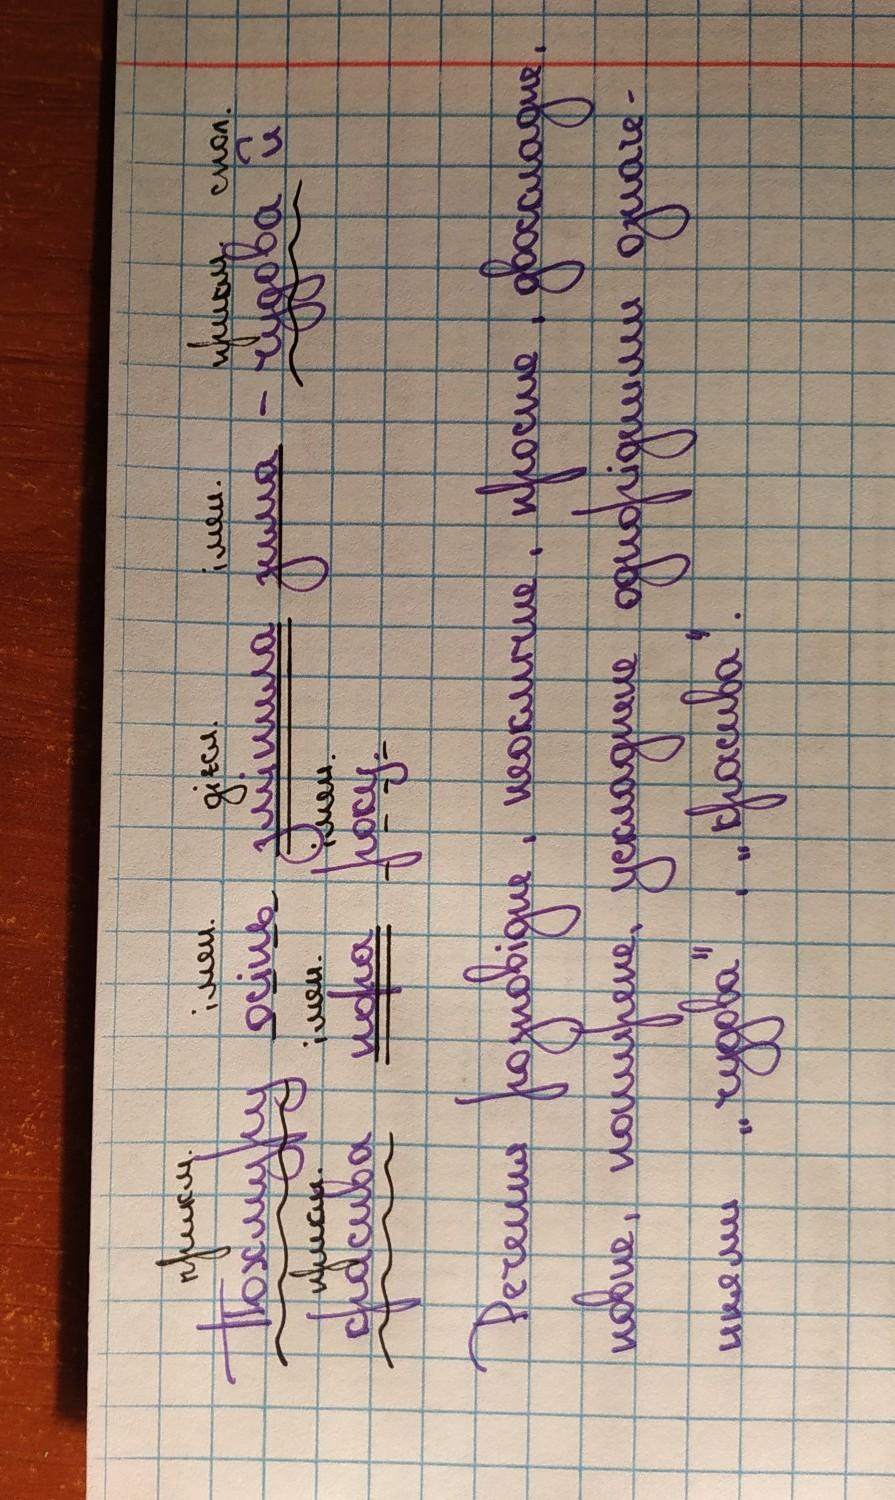 прикм. імен. дієсл. імен. прикм. спол.
Похмуру осінь змінила зима - чудова й
прикм. імен. імен.
красива пора року.
Речення розповідне, неокличне, просте, двоскладне,
повне, поширене, ускладнене однорідними означе-
ннями "чудова", "красива".